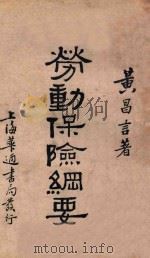 黃昌言著
勞動保險綱要
上海華通書局發行
www.towuu.com